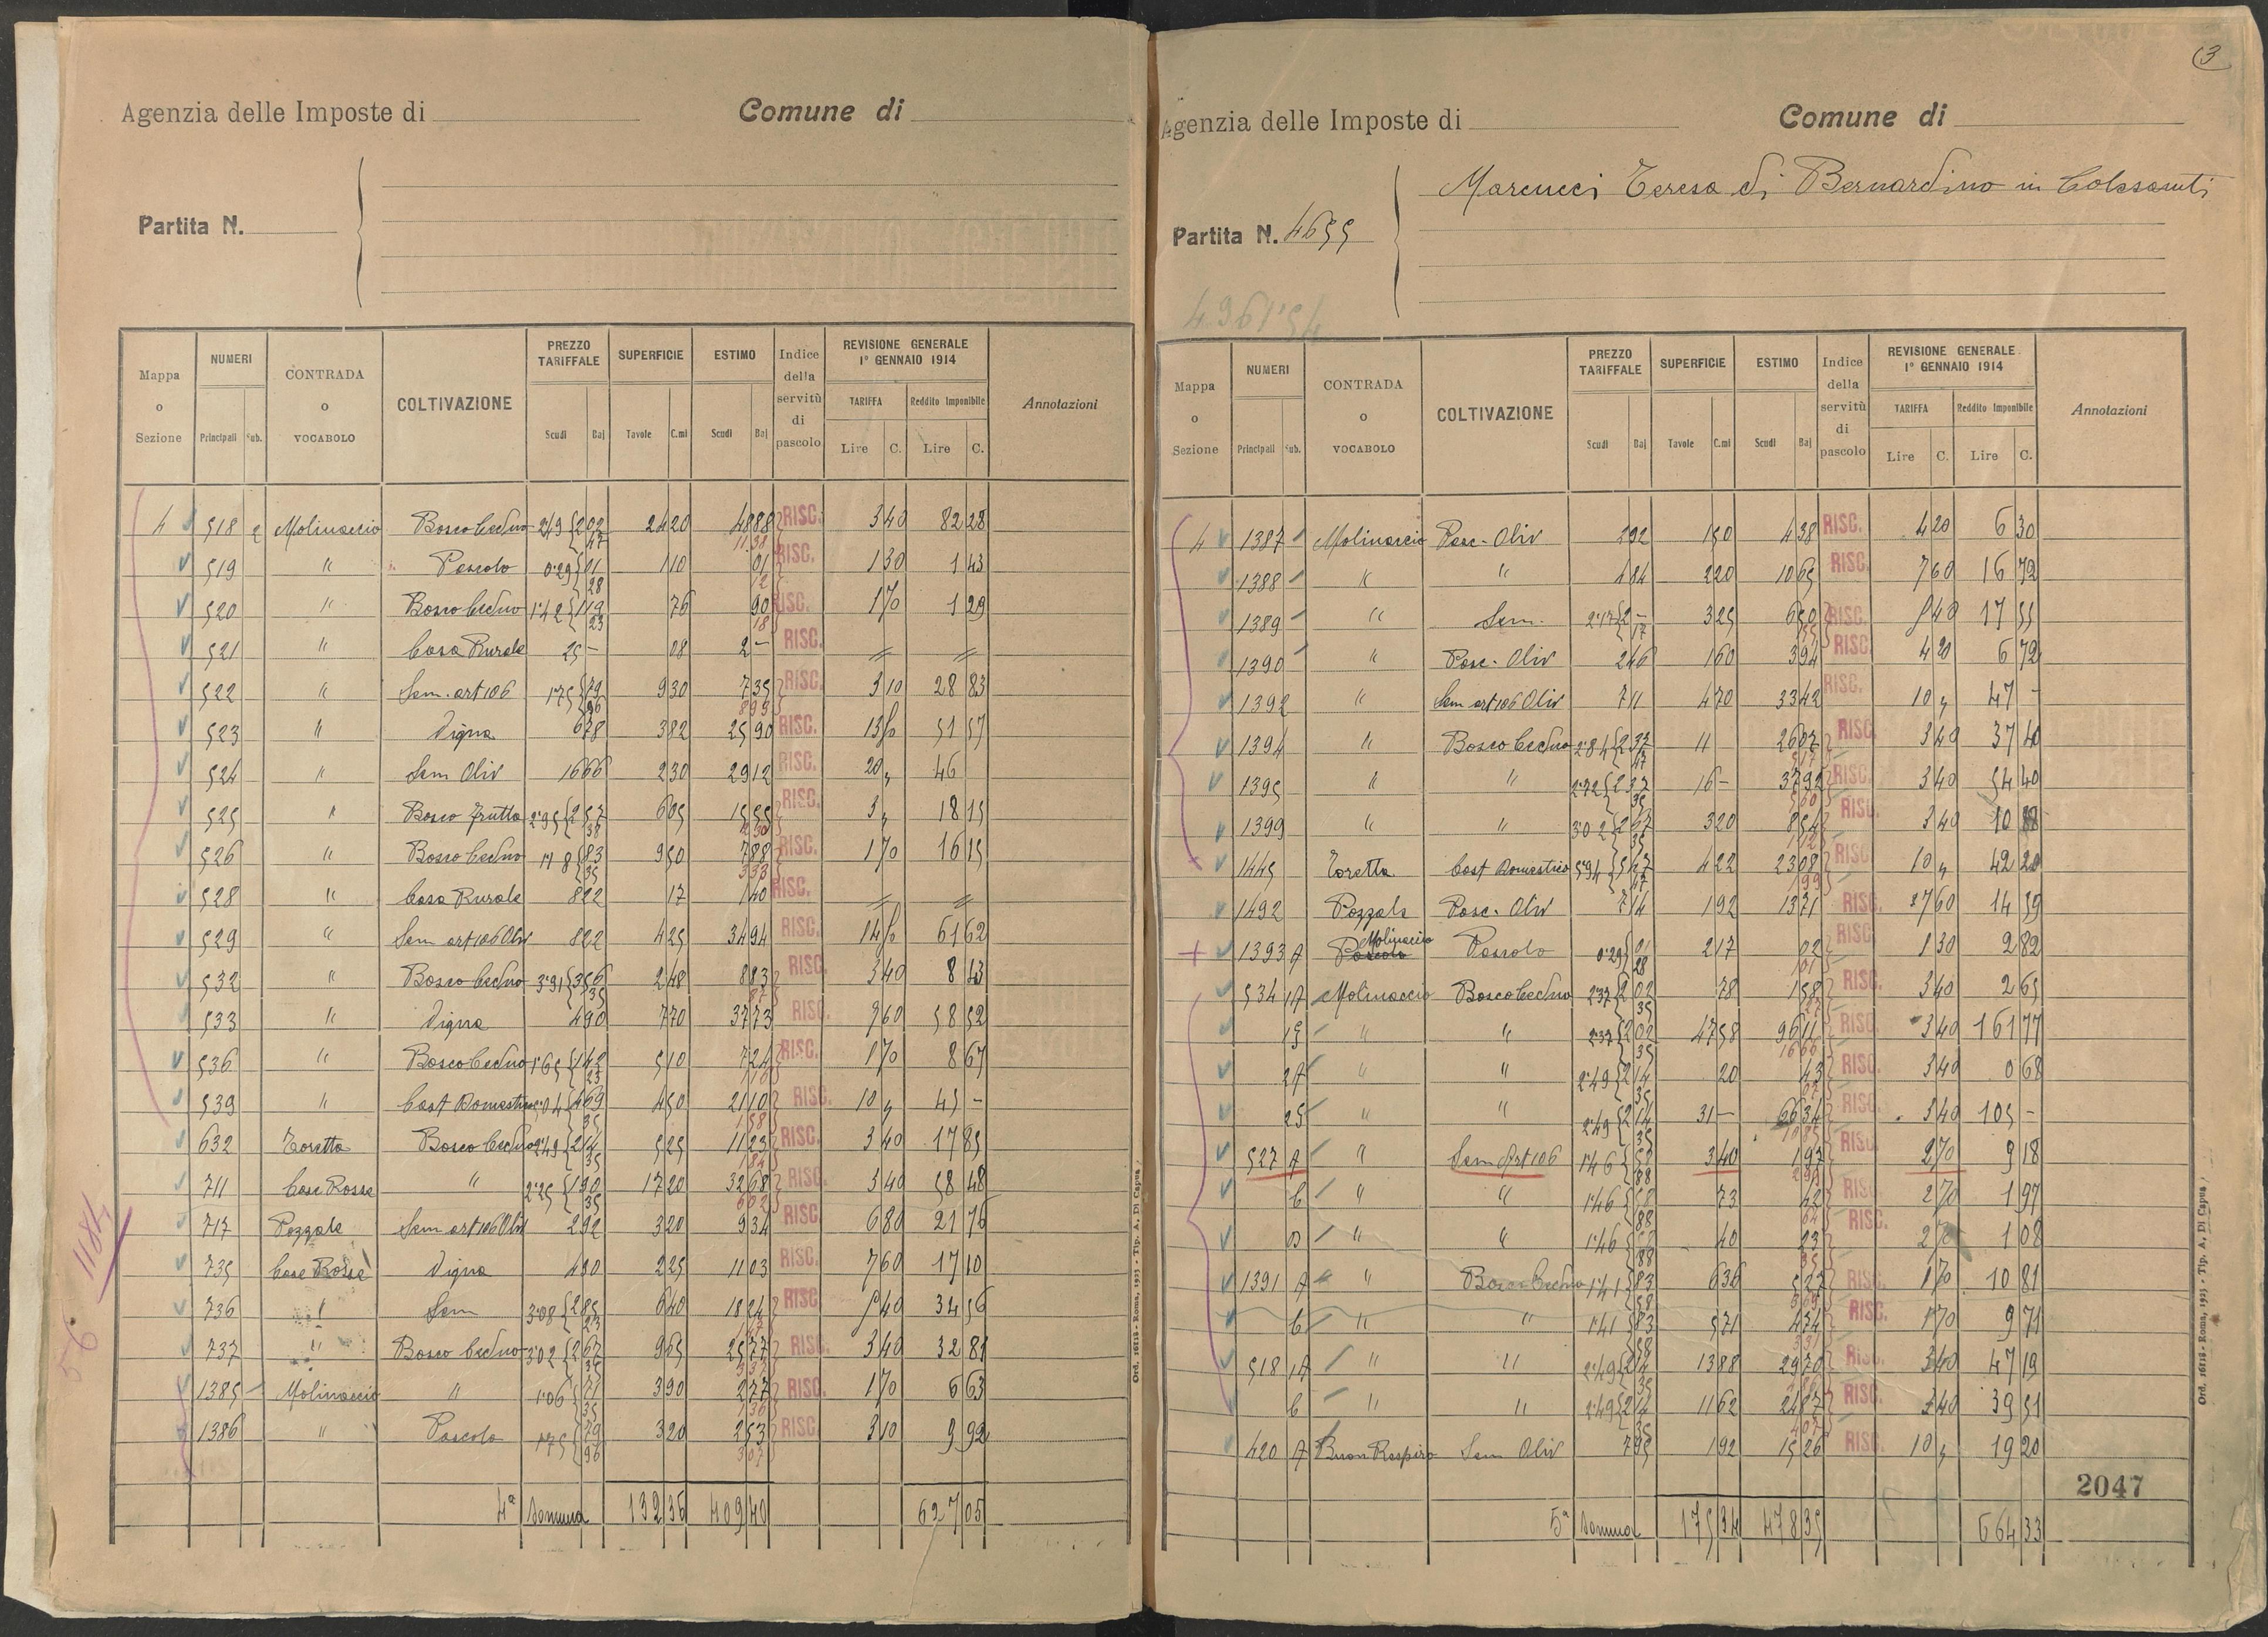 Agenzia delle Imposte di
Comune di
Partita N.
Mappa o Sezione
NUMERI
Principali
Sub.
CONTRADA o VOCABOLO
COLTIVAZIONE
PREZZO TARIFFALE
Scudi
Baj
SUPERFICIE
Tavole
C.mi
ESTIMO
Scudi
Baj
Indice della servitù di pascolo
REVISIONE GENERALE 1° GENNAIO 1914
TARIFFA
Reddito Imponibile
Lire C. Lire C.
Annotazioni
4 518 2 Molinaccio Bosco Ceduo 2'49 202 47 24 20 48 88 RISC. 3 40 82 28
519 " Pascolo 0'29 01 28 1 10 01 RISC. 1 30 1 43
520 " Bosco Ceduo 1'42 119 23 76 90 RISC. 1 70 1 29
521 " Casa Rurale 25 - 08 2 - RISC.
522 " Sem. art 106 1'75 79 96 9 30 7 35 RISC. 3 10 28 83
523 " Vigna 6 78 3 82 25 90 RISC. 13 50 51 57
524 " Sem Oliv 16 66 2 30 29 12 RISC. 20 " 46
525 " Bosco frutto 2'95 257 38 6 05 15 55 RISC. 3 " 18 15
526 " Bosco Ceduo 1'18 83 35 9 50 7 88 RISC. 1 70 16 15
528 " Casa Rurale 8 22 17 1 40 RISC.
529 " Sem art 106 Oliv 8 22 4 25 34 94 RISC. 14 50 61 62
532 " Bosco Ceduo 3'91 356 35 2 48 8 83 RISC. 3 40 8 43
533 " Vigna 4 90 7 70 37 73 RISC. 7 60 58 52
536 " Bosco Ceduo 1'65 142 23 5 10 7 24 RISC. 1 70 8 67
539 " Cast Domestico 5'04 469 35 4 50 21 10 RISC. 10 " 45 -
632 Toretta Bosco Ceduo 2'49 214 35 5 25 11 23 RISC. 3 40 17 85
711 Case Rosse " 2'25 190 35 17 20 32 68 RISC. 3 40 58 48
717 Pozzale Sem art 106 Oliv 2 92 3 20 9 34 RISC. 6 80 21 76
735 Case Rosse Vigna 4 90 2 25 11 03 RISC. 7 60 17 10
736 " Sem 3'08 285 23 6 40 18 24 RISC. 5 40 34 56
737 " Bosco Ceduo 3'02 267 35 9 65 25 77 RISC. 3 40 32 81
1385 Molinaccio " 1'06 71 35 3 90 2 77 RISC. 1 70 6 63
1386 " Pascolo 1'75 79 96 3 20 2 53 RISC. 3 10 9 92
4ª Somma 132 36 409 40 627 05
56 1184
Ord. 16118 - Roma, 1923 - Tip. A. Di Capua
3
Agenzia delle Imposte di
Comune di
Partita N. 4655
Marcucci Teresa di Bernardino in Colasanti
Mappa o Sezione
NUMERI
Principali
Sub.
CONTRADA o VOCABOLO
COLTIVAZIONE
PREZZO TARIFFALE
Scudi
Baj
SUPERFICIE
Tavole
C.mi
ESTIMO
Scudi
Baj
Indice della servitù di pascolo
REVISIONE GENERALE 1° GENNAIO 1914
TARIFFA
Reddito Imponibile
Lire C. Lire C.
Annotazioni
4 1387 Molinaccio Pasc. Oliv 2 92 1 50 4 38 RISC. 4 20 6 30
1388 " " 4 84 2 20 10 65 RISC. 7 60 16 72
1389 " Sem. 2'17 2 - 17 3 25 6 50 RISC. 5 40 17 55
1390 " Pasc. Oliv 2 46 1 60 3 94 RISC. 4 20 6 72
1392 " Sem art 106 Oliv 7 11 4 70 33 42 RISC. 10 " 47 -
1394 " Bosco Ceduo 2'84 237 47 11 26 07 RISC. 3 40 37 40
1395 " " 2'72 237 35 16 - 37 92 RISC. 3 40 54 40
1399 " " 3'02 267 35 3 20 8 54 RISC. 3 40 10 88
1445 Toretta Cast Domestico 5'94 547 47 4 22 23 08 RISC. 10 " 42 20
1492 Pozzale Pasc. Oliv 7 14 1 92 13 71 RISC. 7 60 14 59
1393 A Molinaccio Pascolo 0'29 01 28 2 17 02 RISC. 1 30 2 82
534 1A Molinaccio Bosco Ceduo 2'37 202 35 78 1 58 RISC. 3 40 2 65
1B " " 2'37 202 35 47 58 96 11 RISC. 3 40 161 77
2A " " 2'49 214 35 20 43 RISC. 3 40 0 68
2B " " 2'49 214 35 31 - 66 34 RISC. 3 40 105 -
527 A " Sem Art 106 1'46 58 88 3 40 1 97 RISC. 2 70 9 18
b " " 1'46 58 88 73 42 RISC. 2 70 1 97
D " " 1'46 58 88 40 23 RISC. 2 70 1 08
1391 A " Bosco Ceduo 1'41 83 58 6 36 5 27 RISC. 1 70 10 81
b " " 1'41 83 58 5 71 4 74 RISC. 1 70 9 71
518 1A " " 2'49 214 35 13 88 29 70 RISC. 3 40 47 19
b " " 2'49 214 35 11 62 24 87 RISC. 3 40 39 51
420 A Buon Respiro Sem Oliv 7 95 1 92 15 26 RISC. 10 " 19 20
2047
5ª Somma 175 34 478 35 664 33
Ord. 16118 - Roma, 1923 - Tip. A. Di Capua